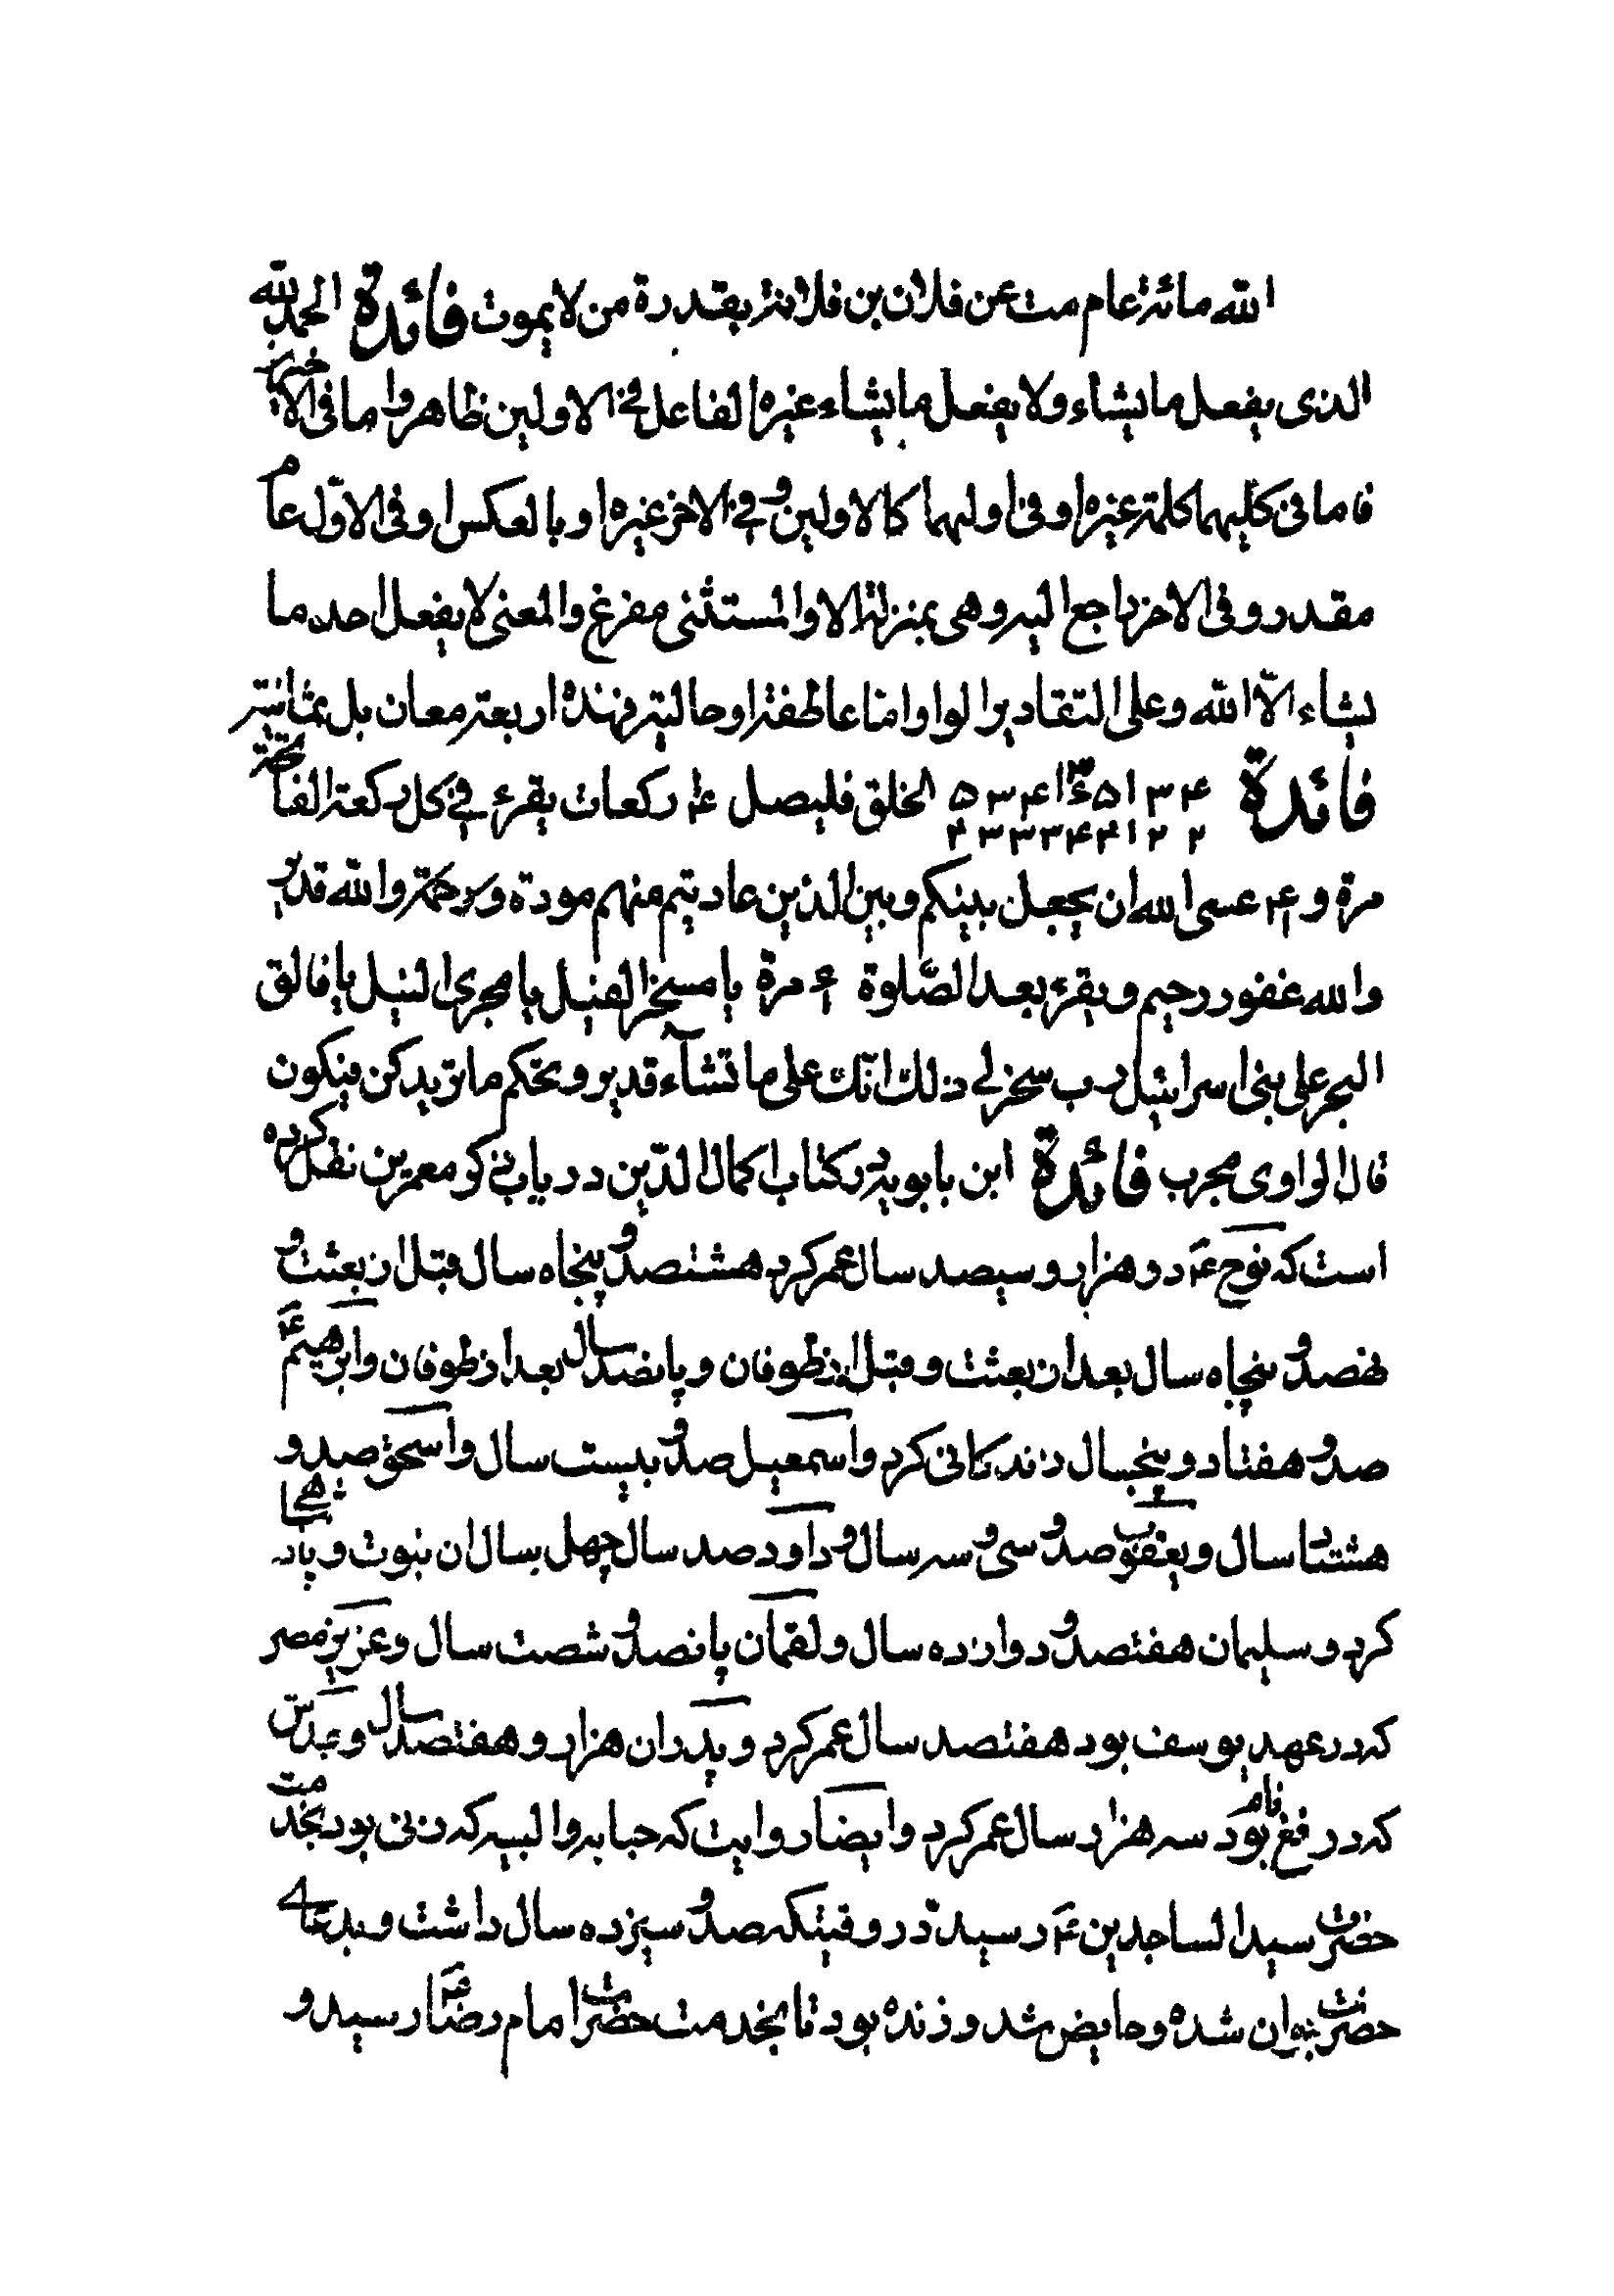 الله مائة عام مت عن فلان بن فلانة بقدرة من لا يموت فائدة الحمد لله
الذى يفعل ما يشاء ولا يفعل ما يشاء غيره الفاعل فى الاولين ظاهر واما فى الاخيرين
فاما فى كليهما كلمة غيره او فى اوليهما كالاولين وفى الاخر غيره او بالعكس او فى الاول عام
مقدر وفى الاخر راجع اليه وهى بمنزلة الا والمستثنى مفرغ والمعنى لا يفعل احد ما
يشاء الّا الله وعلى التقادير الواو اما عاطفة او حالية فهذه اربعة معان بل ثمانية
فائدة الخلق فليصل ۴ ركعات يقرء فى كل ركعة الفاتحة
مرة و عسى الله ان يجعل بينكم وبين الذين عاديتم منهم مودة ورحمة والله قدير
والله غفور رحيم ويقرء بعد الصّلوة مرة يا مسخر الفيل يا مجرى النيل يا فالق
البحر على بنى اسرائيل رب سخر لى ذلك انّك على ما تشآء قدير وتحكم ما تريد كن فيكون
قال الراوى مجرب فائدة ابن بابويه در كتاب اكمال الدّين در بابى كو معمرين نقل كرده
است كه نوح ع دو هزار و سيصد سال عمر كرد هشتصد و پنجاه سال قبل از بعثت و
نهصد و پنجاه سال بعد از بعثت و قبل از طوفان و پانصد سال بعد از طوفان و ابرهيم ع
صد و هفتاد و پنجسال زندكانى كرد و اسمعيل صد و بيست سال و اسحق صد و
هشتاد سال و يعقوب صد و سى و سه سال و داود صد سال چهل سال از نبوت و پادشاهى
كرد و سليمان هفتصد و دوازده سال و لقمان پانصد و شصت سال و عزيز مصر
كه در عهد يوسف بود هفتصد سال عمر كرد و پدر ان هزار و هفتصد سال و
كه در نام بود سه هزار سال عمر كرد و ايضا روايت كه حبابه والبيه كه زنى بود بخدمت
حضرت سيد الساجدين ع رسيد در وقتيكه صد و سيزده سال داشت و بدعاى
حضرت جوان شده و حايض شد و زنده بود تا بخدمت حضرت امام رضا ع رسيد و